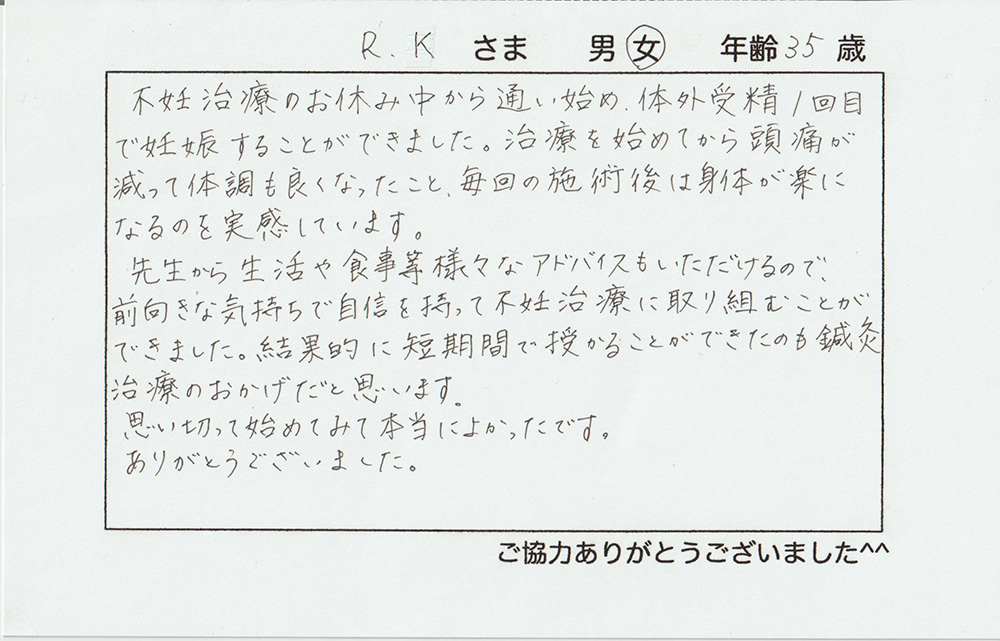 R.K さま 男 女 年齢 35 歳
不妊治療のお休み中から通い始め、体外受精1回目
で妊娠することができました。治療を始めてから頭痛が
減って体調も良くなったこと、毎回の施術後は身体が楽に
なるのを実感しています。
先生から生活や食事等様々なアドバイスもいただけるので、
前向きな気持ちで自信を持って不妊治療に取り組むことが
できました。結果的に短期間で授かることができたのも鍼灸
治療のおかげだと思います。
思い切って始めてみて本当によかったです。
ありがとうございました。
ご協力ありがとうございました^^